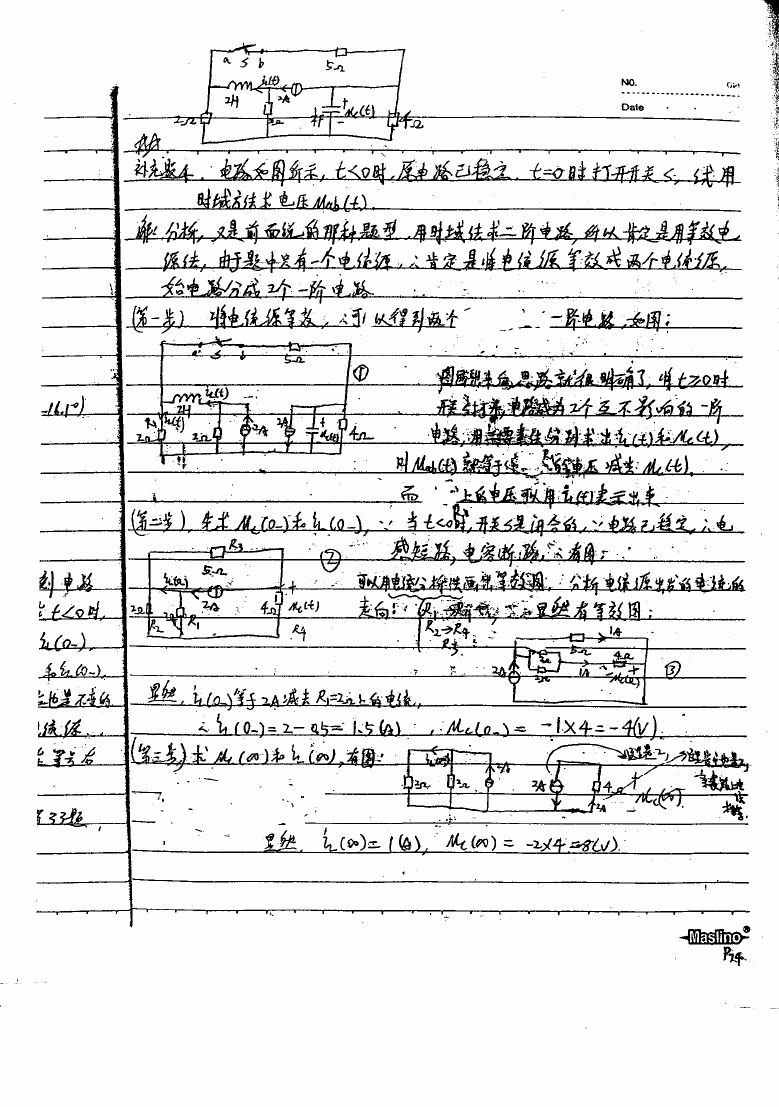 a S b
5Ω
iL(t)
2H
2A
uc(t)
2Ω
4Ω
NO.
Date
补充题4. 电路如图所示, t<0时, 原电路已稳定. t=0时打开开关S, 试用
时域方法求电压Uab(t).
解: 分析, 又是前面说的那种题型. 用时域法求二阶电路, 所以肯定是用等效电
源法, 由于题中只有一个电流源, ∴肯定是将电流源等效成两个电流源,
始电路分成2个一阶电路
(第一步) 将电流源等效, ∴可以得到两个 一阶电路, 如图:
5Ω
①
iL(t)
2H
2Ω
2Ω
2A
2A
uc(t)
4Ω
思路就很明确了, 当t≥0时
-16.1°)
开关打开, 电路成为2个互不影响的一阶
电路, 用三要素法分别求出iL(t)和uc(t),
则Uab(t)就等于 电压减去uc(t).
而 上的电压可以用iL(t)表示出来
(第二步) 先求uc(0-)和iL(0-), ∵当t<0时, 开关S是闭合的, ∵电路已稳定, ∴电
感短路, 电容断路, ∴有图:
R3
②
5Ω
2A
2Ω
R2
R1
4Ω
uc(t)
R4
可以用电流分析法画出等效图, 分析电流源出发的电流的
走向: 显然有等效图:
R2→R4
R3
1A
5Ω
4Ω
2A
1A
③
刻电路
t<0时,
iL(0-),
和iL(0-),
是不变的
流源
等号右
33题
显然, iL(0-)等于2A减去R1=2Ω上的电流,
∴iL(0-)=2-0.5=1.5(A), uc(0-)=-1×4=-4(V).
(第三步) 求uc(∞)和iL(∞), 有图:
2Ω
2Ω
2A
2A
4Ω
2A
uc(∞)
显然, iL(∞)=1(A), uc(∞)=-2×4=-8(V).
Maslino®
P74